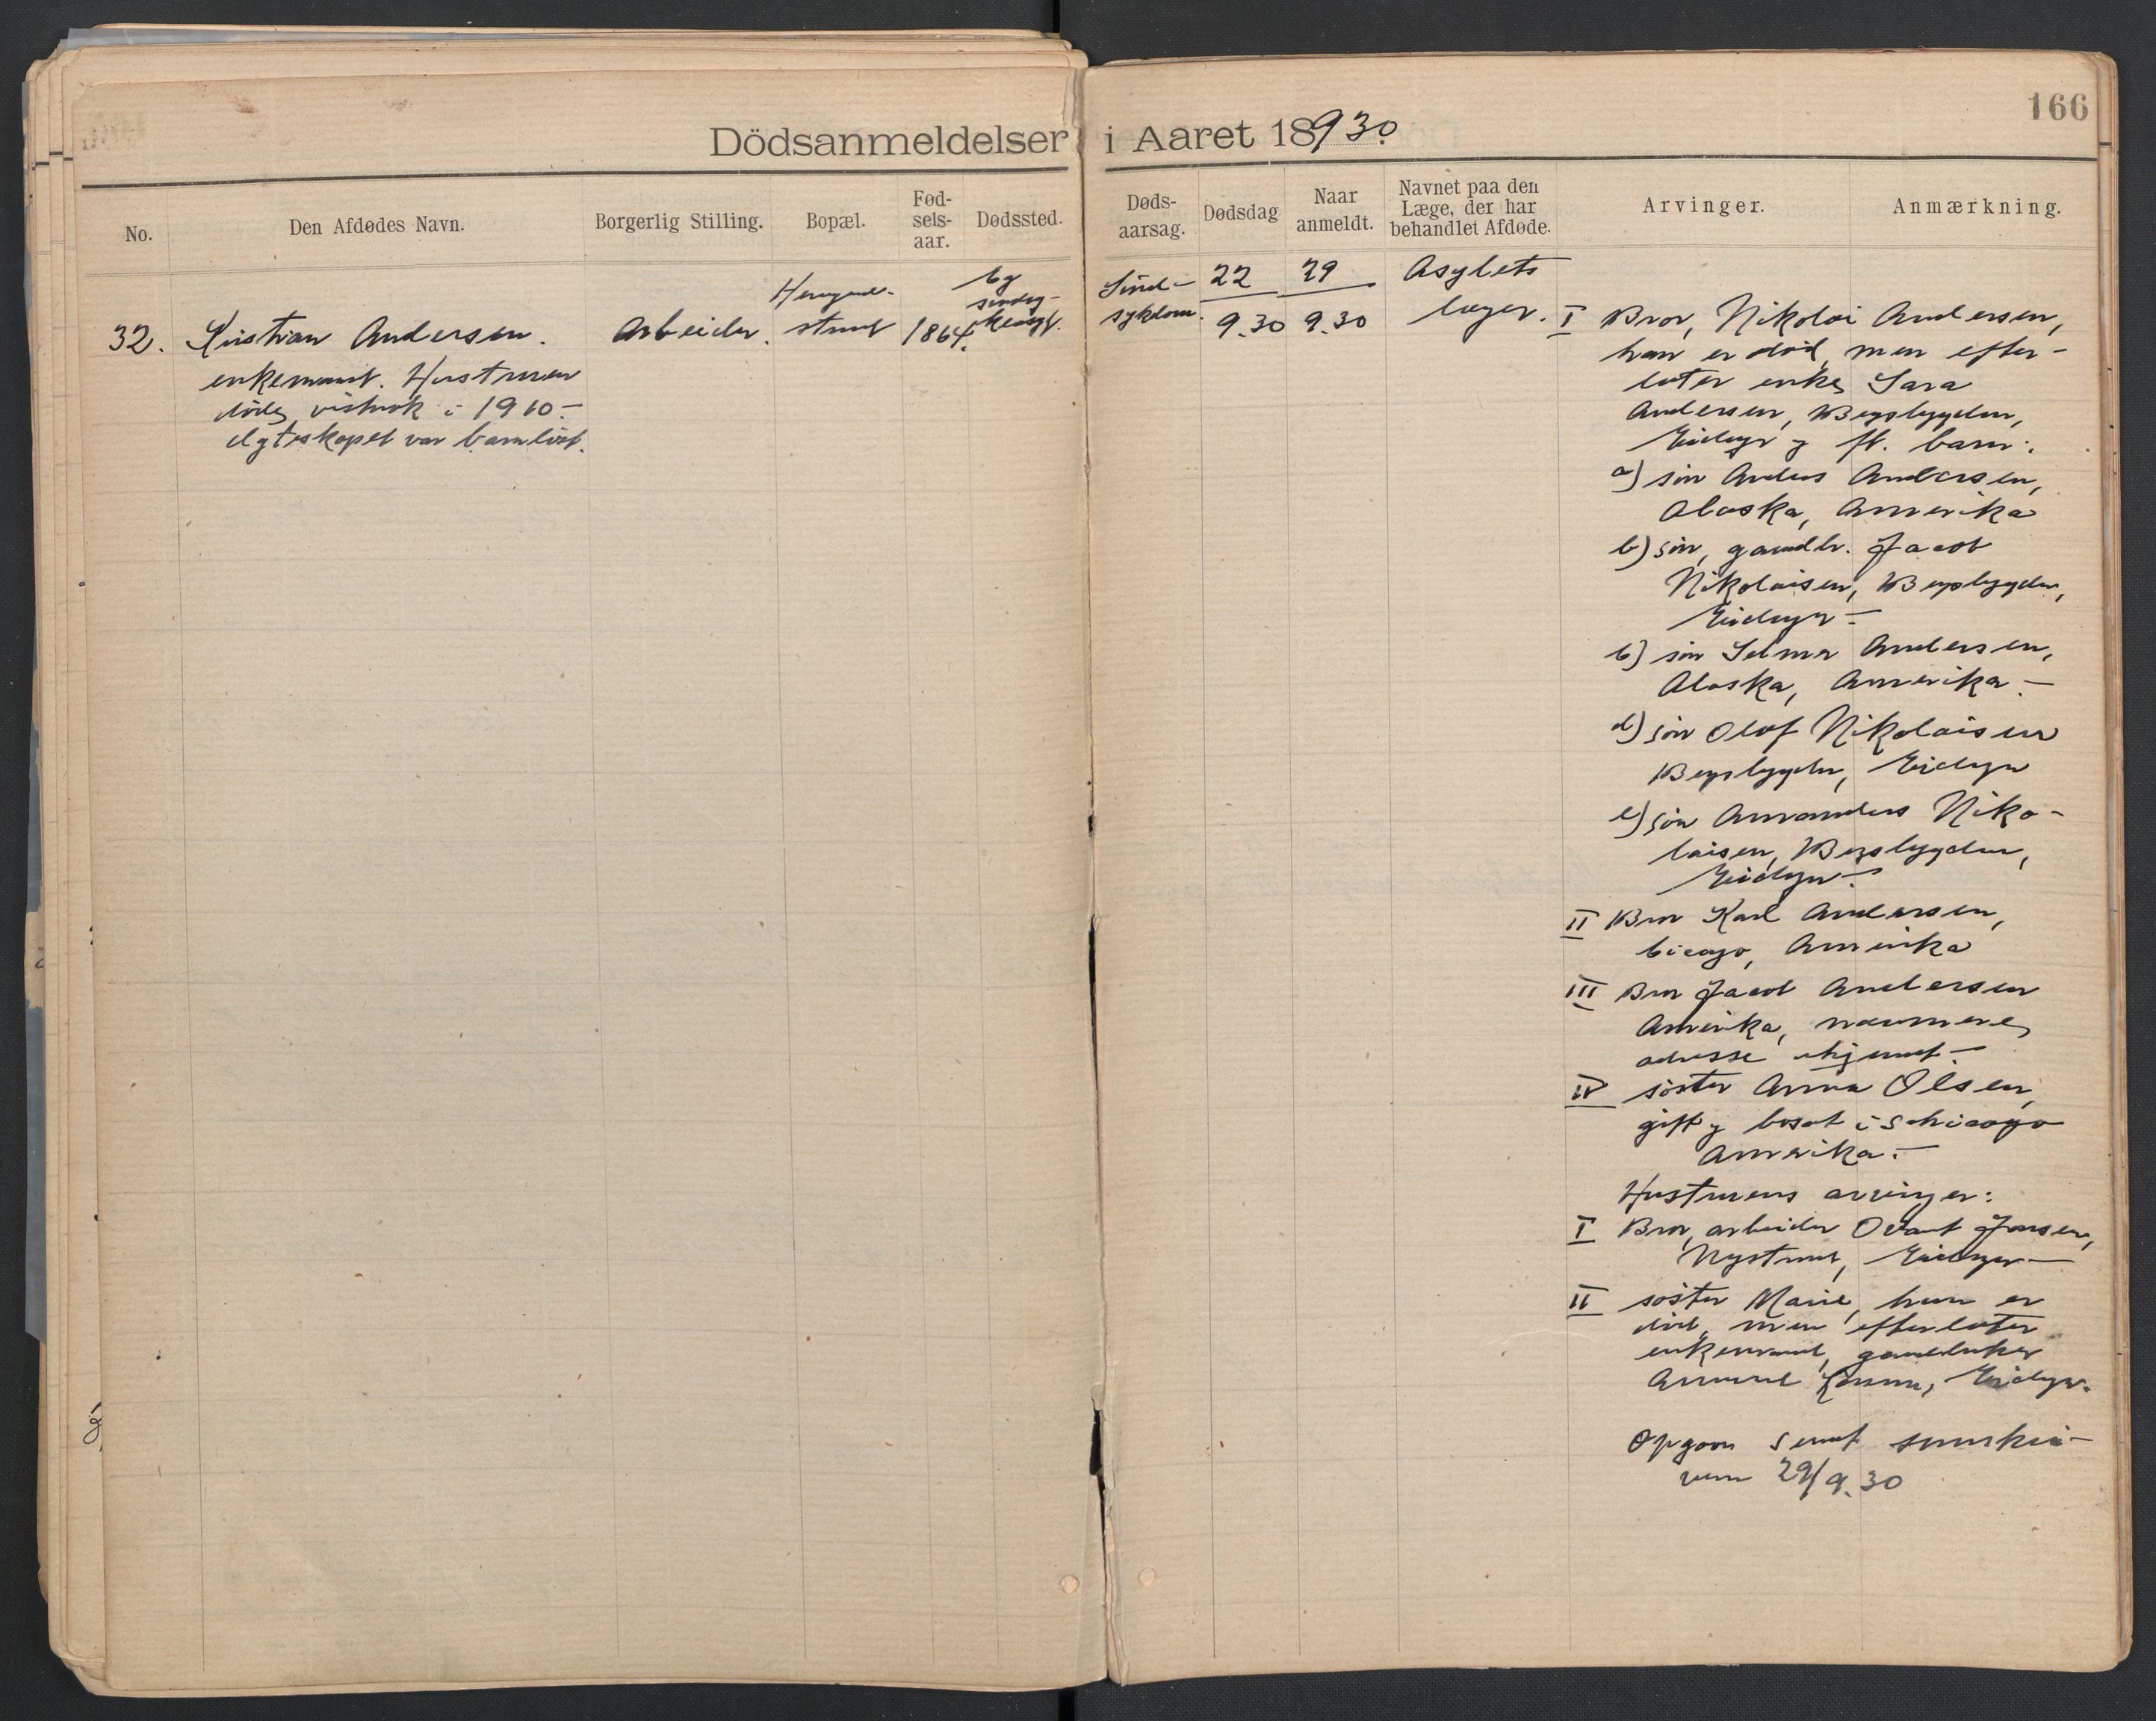 166
Dödsanmeldelser i Aaret 18930.
No.
Den Afdødes Navn.
Borgerlig Stilling.
Bopæl.
Fød-
sels-
aar.
Dødssted.
Døds-
aarsag.
Dødsdag
Naar
anmeldt.
Navnet paa den
Læge, der har
behandlet Afdøde.
Arvinger.
Anmærkning.
32.
Kristian Andersen.
enkemand. Hustruen
döde, vistnok i 1910.-
Egteskapet var barnlöst.
Arbeider.
strand
1864.
Sind-
sykdom.
22
9.30
29
9.30
Asylets
læger.
I Bror, Nikolai Andersen,
han er död, men efter-
later enke, Sara
Andersen, Bergsbygden,
Eidanger og fl. barn:
a) sön Anders Andersen,
Alaska, Amerika
b) sön, gaardbr. Jacob
Nikolaisen, Bergsbygden,
Eidanger.-
c) sön Selmer Andersen,
Alaska, Amerika.-
d) sön Olaf Nikolaisen
Bergsbygden, Eidanger
e) sön Amandus Niko-
laisen, Bergsbygden,
Eidanger.-
II Bror Karl Andersen,
Cicago, Amerika
III Bror Jacob Andersen
Amerika, nærmere
adresse ukjendt.-
IV söster Anna Olsen,
gift og bosat i Schicago
Amerika.-
Hustruens arvinger:
I Bror, arbeider Jansen,
Nystrand, Eidanger-
II söster Marie, hun er
död, men efterlater
enkemand, gaardbruker
Eidanger.
Opgaar sendt senskif-
29/9.30